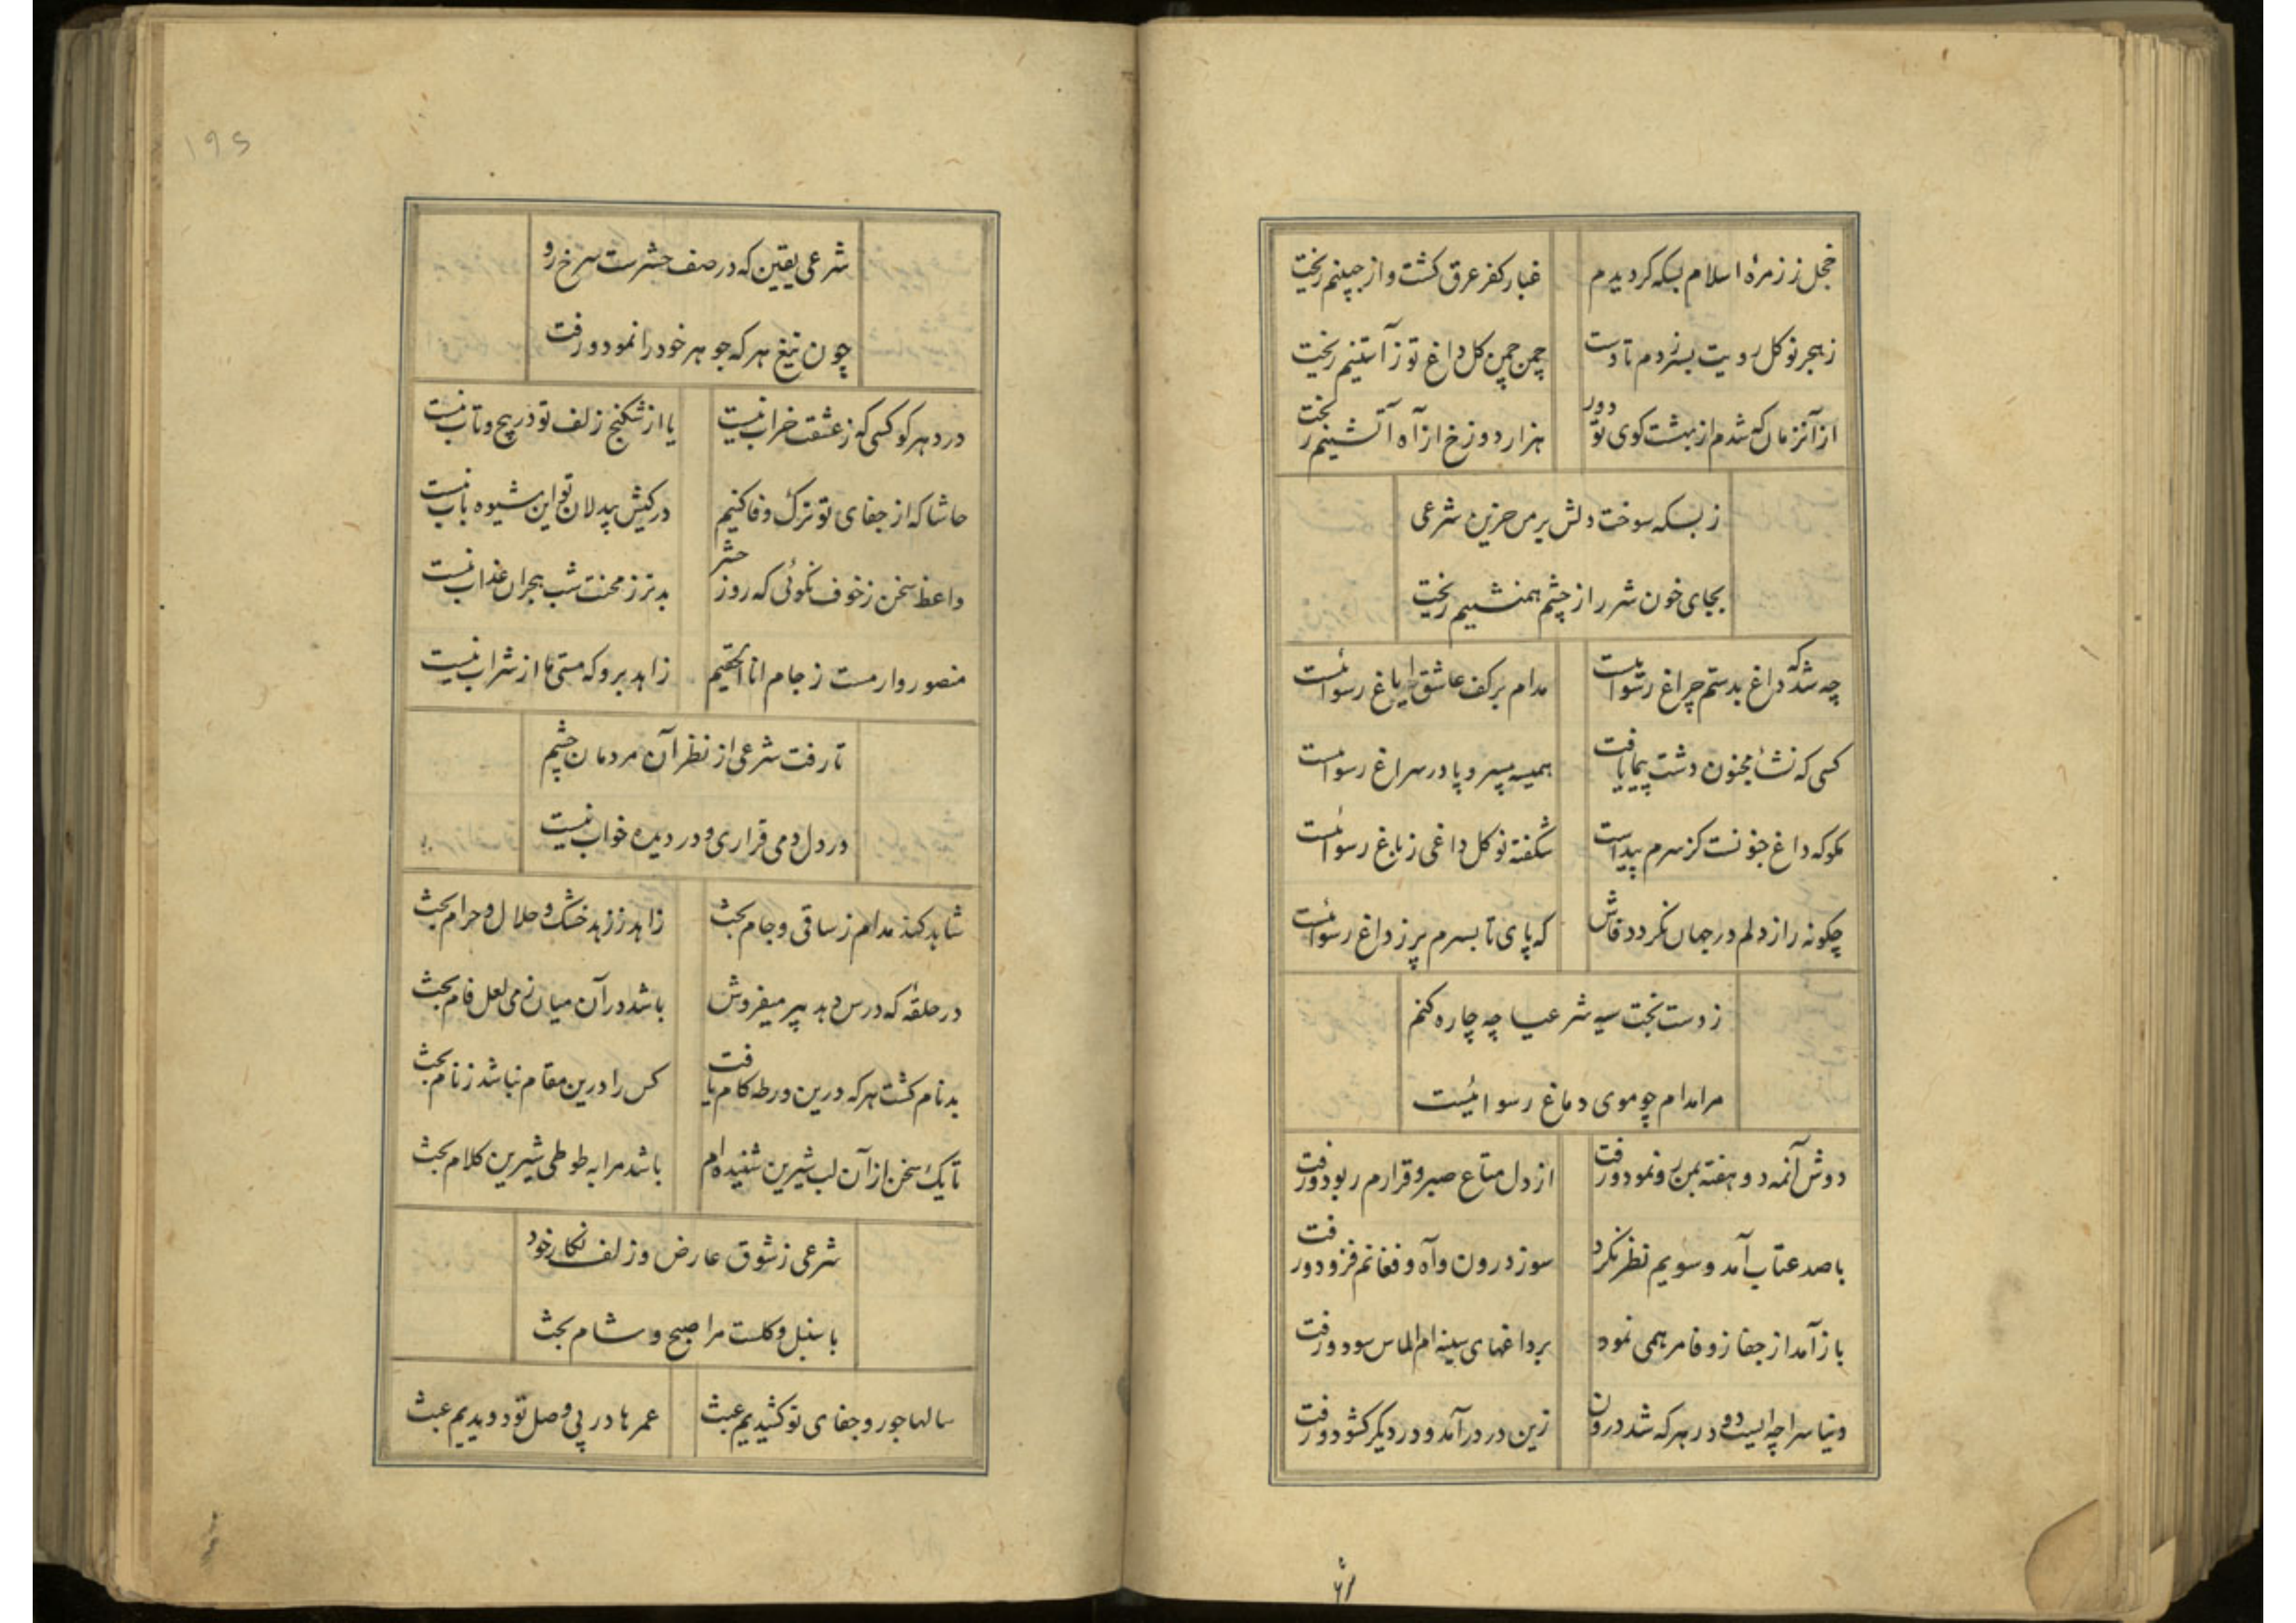 خجل ز زمرهٔ اسلام بسکه کردیدم غبار کفر عرق کشت و از جبینم ریخت
ز هجر نو کل رویت بسر زدم تا دست چمن چمن کل داغ تو ز آستینم ریخت
از آنزمان که شدم از بهشت کوی تو دور هزار دوزخ از آه آتشینم ریخت
ز بسکه سوخت دلش بر من حزین شرعی
بجای خون شرر از چشم همنشینم ریخت
چه شد که داغ بدستم چراغ رسوائیست مدام بر کف عاشق ایاغ رسوائیست
کسی که نشأ مجنون دشت پیما یافت همیشه بیسر و پا در سراغ رسوائیست
مکو که داغ جنونست کز سرم پیداست شکفته نو کل داغی ز باغ رسوائیست
چکونه راز دلم در جهان نکردد فاش که پای تا بسرم پر ز داغ رسوائیست
ز دست بخت سیه شرعیا چه چاره کنم
مرا مدام چو موی دماغ رسوائیست
دوش آنمه دو هفته بمن رو نمود و رفت از دل متاع صبر و قرارم ربود و رفت
با صد عتاب آمد و سویم نظر نکرد سوز درون و آه و فغانم فزود و رفت
باز آمد از جفا ز وفا مرهمی نمود بر داغهای سینه ام الماس سود و رفت
دنیا سراچه ایست دو در هر که شد درون زین در درآمد و در دیکر کشود و رفت
۱۹۵
شرعی یقین که در صف حشرست سرخ رو
چون تیغ هر که جوهر خود را نمود و رفت
در دهر کو کسی که ز عشقت خراب نیست یا از شکنج زلف تو در پیچ و تاب نیست
حاشا که از جفای تو ترک وفا کنیم در کیش بیدلان تو این شیوه باب نیست
واعظ سخن ز خوف نکوئی که روز حشر بدتر ز محنت شب هجران عذاب نیست
منصوروار مست ز جام انا الحقیم زاهد برو که مستی ما از شراب نیست
تا رفت شرعی از نظر آن مردمان چشم
در دل دمی قراری و در دیده خواب نیست
شاید کند مدام ز ساقی و جام بحث زاهد ز زهد خشک و حلال و حرام بحث
در حلقهٔ که درس دهد پیر میفروش باشد در آن میان ز می لعل فام بحث
بدنام کشت هر که درین ورطه کام یافت کس را درین مقام نباشد ز نام بحث
تا یک سخن از آن لب شیرین شنیده ام باشد مرا به طوطی شیرین کلام بحث
شرعی ز شوق عارض و زلف نکار خود
با سنبل و کلست مرا صبح و شام بحث
سالها جور و جفای تو کشیدیم عبث عمرها در پی وصل تو دویدیم عبث